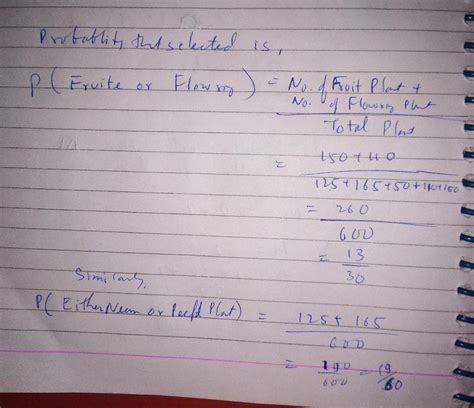 Probablity that selected is,
P (Fruite or Flowering) = No. of Fruit Plant + No. of Flowering Plant
Total Plant
= 150+110
125+165+50+110+150
= 260
600
= 13
30
Similarly,
P( Either Neem or Peepl Plant) = 125+165
600
= 290
600
= 19
60